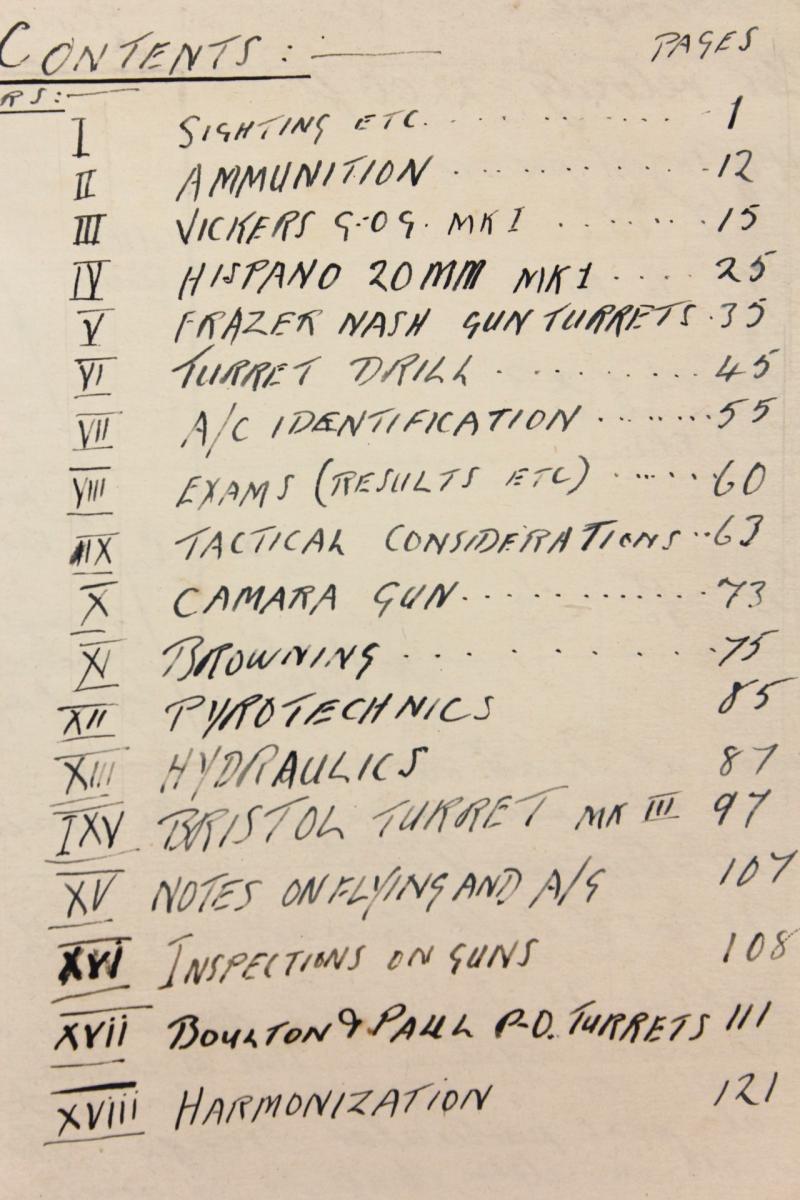 CONTENTS:
PAGES
RS:
I SIGHTING ETC. 1
II AMMUNITION 12
III VICKERS G.O.G. MK I 15
IV HISPANO 20MM MK1 25
V FRAZER NASH GUN TURRETS 35
VI TURRET DRILL 45
VII A/C IDENTIFICATION 55
VIII EXAMS (RESULTS ETC) 60
IX TACTICAL CONSIDERATIONS 63
X CAMARA GUN 73
XI BROWNING 75
XII PYROTECHNICS 85
XIII HYDRAULICS 87
IXV BRISTOL TURRET MK III 97
XV NOTES ON FLYING AND A/G 107
XVI INSPECTIONS ON GUNS 108
XVII BOULTON & PAUL P-D. TURRETS 111
XVIII HARMONIZATION 121